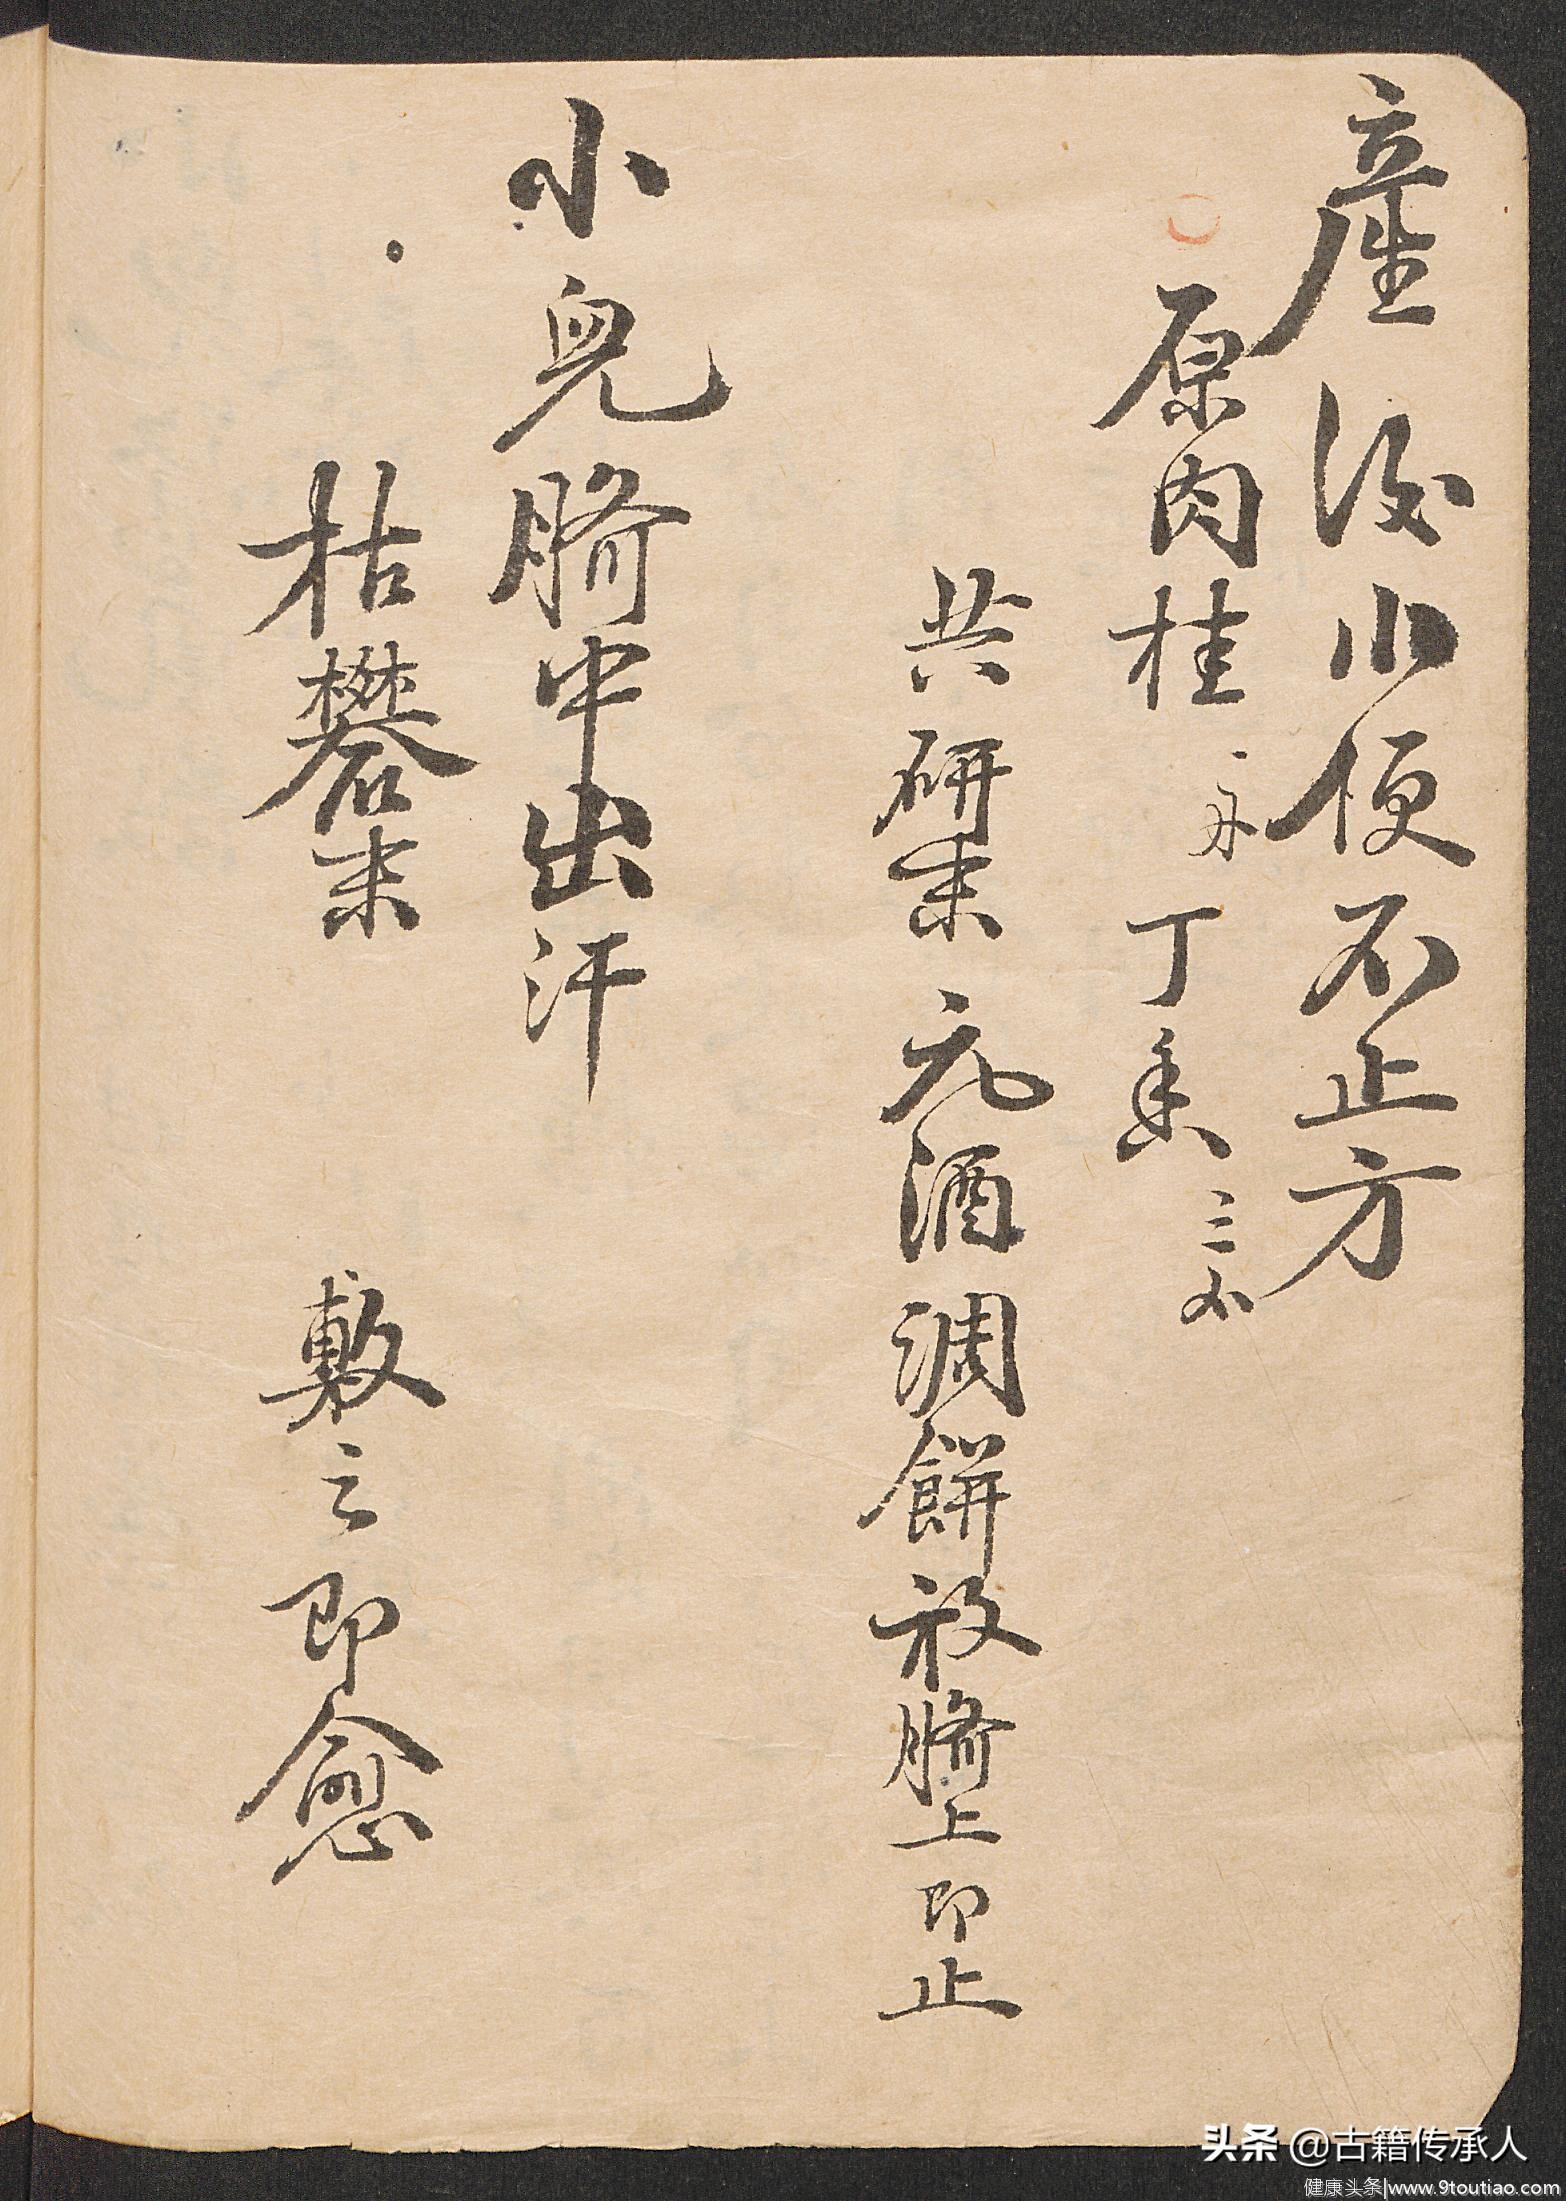 產後小便不止方
原肉桂 丁香
共研末 元酒調餅放臍上即止
小兒臍中出汗
枯礬末 敷之即愈
头条 @古籍传承人
健康头条|www.9toutiao.com